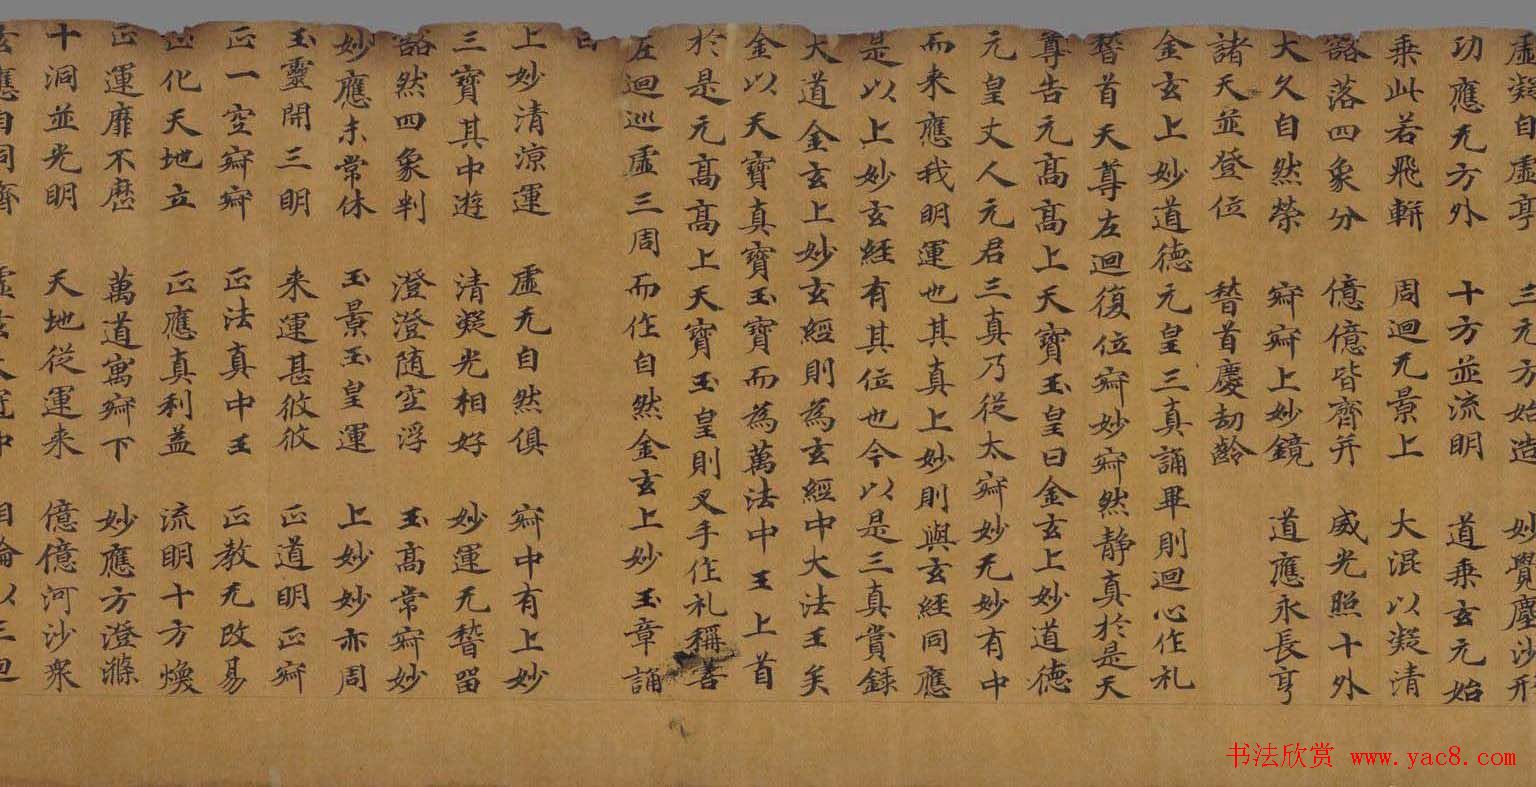 虛凝自虛亭 三元方始造 妙覺塵沙形
功應无方外 十方並流明 道乘玄元始
乘此若飛軿 周迴元景上 大混以凝清
豁落四象分 億億皆齊并 威光照十外
大久自然榮 寂寂上妙鏡 道應永長亨
諸天並登位 稽首慶劫齡
金玄上妙道德元皇三真誦畢則迴心作礼
稽首天尊左迴復位寂妙寂然静真於是天
尊告元高高上天寶玉皇曰金玄上妙道德
元皇丈人元君三真乃從太寂妙无妙有中
而来應我明運也其真上妙則與玄經同應
是以上妙玄經有其位也今以是三真賞錄
大道金玄上妙玄經則為玄經中大法王矣
金以天寶真寶玉寶而為萬法中王上首
於是元高高上天寶玉皇則叉手作礼稱善
左迴巡虛三周而作自然金玄上妙玉章誦
曰
上妙清涼運 虛无自然俱 寂中有上妙
三寶其中遊 清凝光相好 妙運无稽留
豁然四象判 澄澄随空浮 玉高常寂妙
妙應未常休 玉景玉皇運 上妙妙亦周
玉靈開三明 来運甚攸攸 正道明正寂
正一空寂寂 正法真中王 正教无改易
化天地立 正應真利益 流明十方煥
正運靡不歷 萬道寓寂下 妙應方澄滌
十洞並光明 天地從運来 億億河沙衆
玄應自同齊
书法欣赏 www.yac8.com